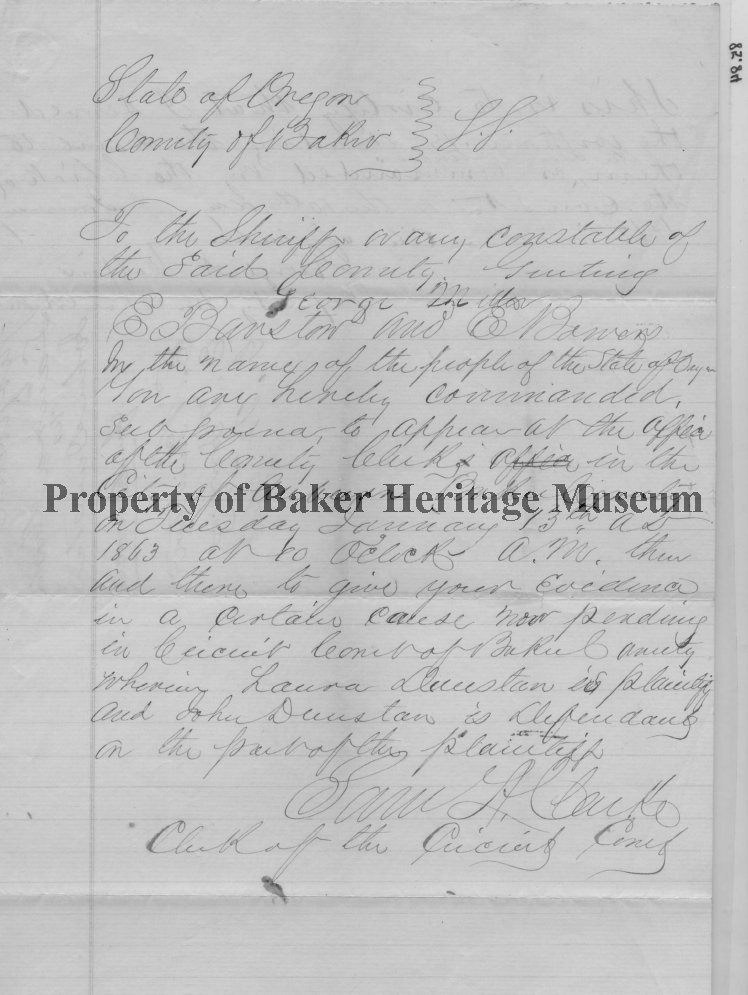 State of Oregon
County of Baker } S.S.
To the Sheriff or any constable of
the Said County Greeting
George Miller
E Barstow and E Bowers
In the name of the people of the State of Oregon
You are hereby commanded
Subpoena, to appear at the office
of the County Clerks office in the
City of Auburn Baker County
Property of Baker Heritage Museum
on Tuesday January 13th AD
1863 at 10 Oclock A.M. then
and there to give your Evidence
in a certain cause now pending
in Circuit Court of Baker County
wherein Laura Dunstan is plaintiff
and John Dunstan is Defendant
on the part of the plaintiff
Sam A. Clarke
Clerk of the Circuit Court